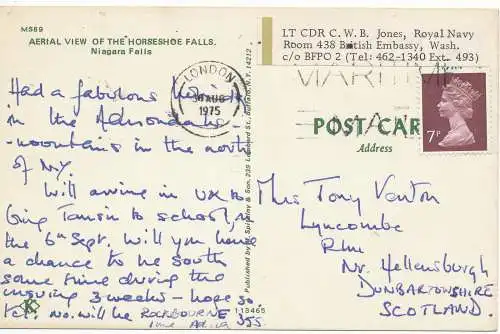 M589
AERIAL VIEW OF THE HORSESHOE FALLS.
Niagara Falls
Had a fabulous
in the Adirondacks
mountains in the north
of NY.
Will arrive in UK to
bring Tamsin to school, on
the 6th Sept. Will you have
a chance to be south
some time during the
ensuing 3 weeks - hope so
Tel. no. will be ROCKBOURNE
355.
K
118465
LONDON
30 AUG
1975
MARITIME
LT CDR C. W. B. Jones, Royal Navy
Room 438 British Embassy, Wash.
c/o BFPO 2 (Tel: 462-1340 Ext. 493)
POST CARD
Address
7P
Mrs Tony Venton
Lyncombe
Rhu
Nr. Hellensburgh
DUNBARTONSHIRE
SCOTLAND.